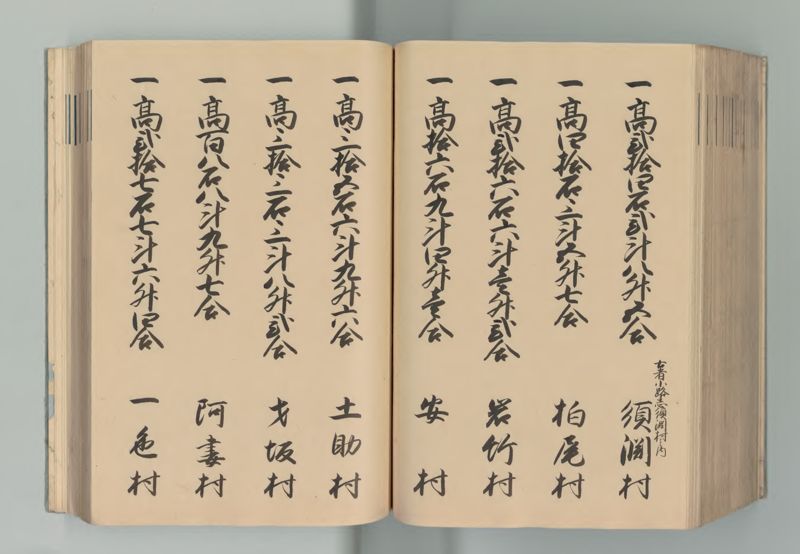 一 高弐拾四石弐斗八升五合 須渕村
古者小路志須渕村之内
一 高四拾石三斗五升七合 柏尾村
一 高弐拾六石六斗壱升弐合 岩竹村
一 高拾六石九斗四升壱合 安村
一 高三拾五石六斗九升六合 土助村
一 高三拾三石三斗八升弐合 才坂村
一 高百八石八斗九升七合 阿妻村
一 高弐拾七石七斗六升四合 一色村